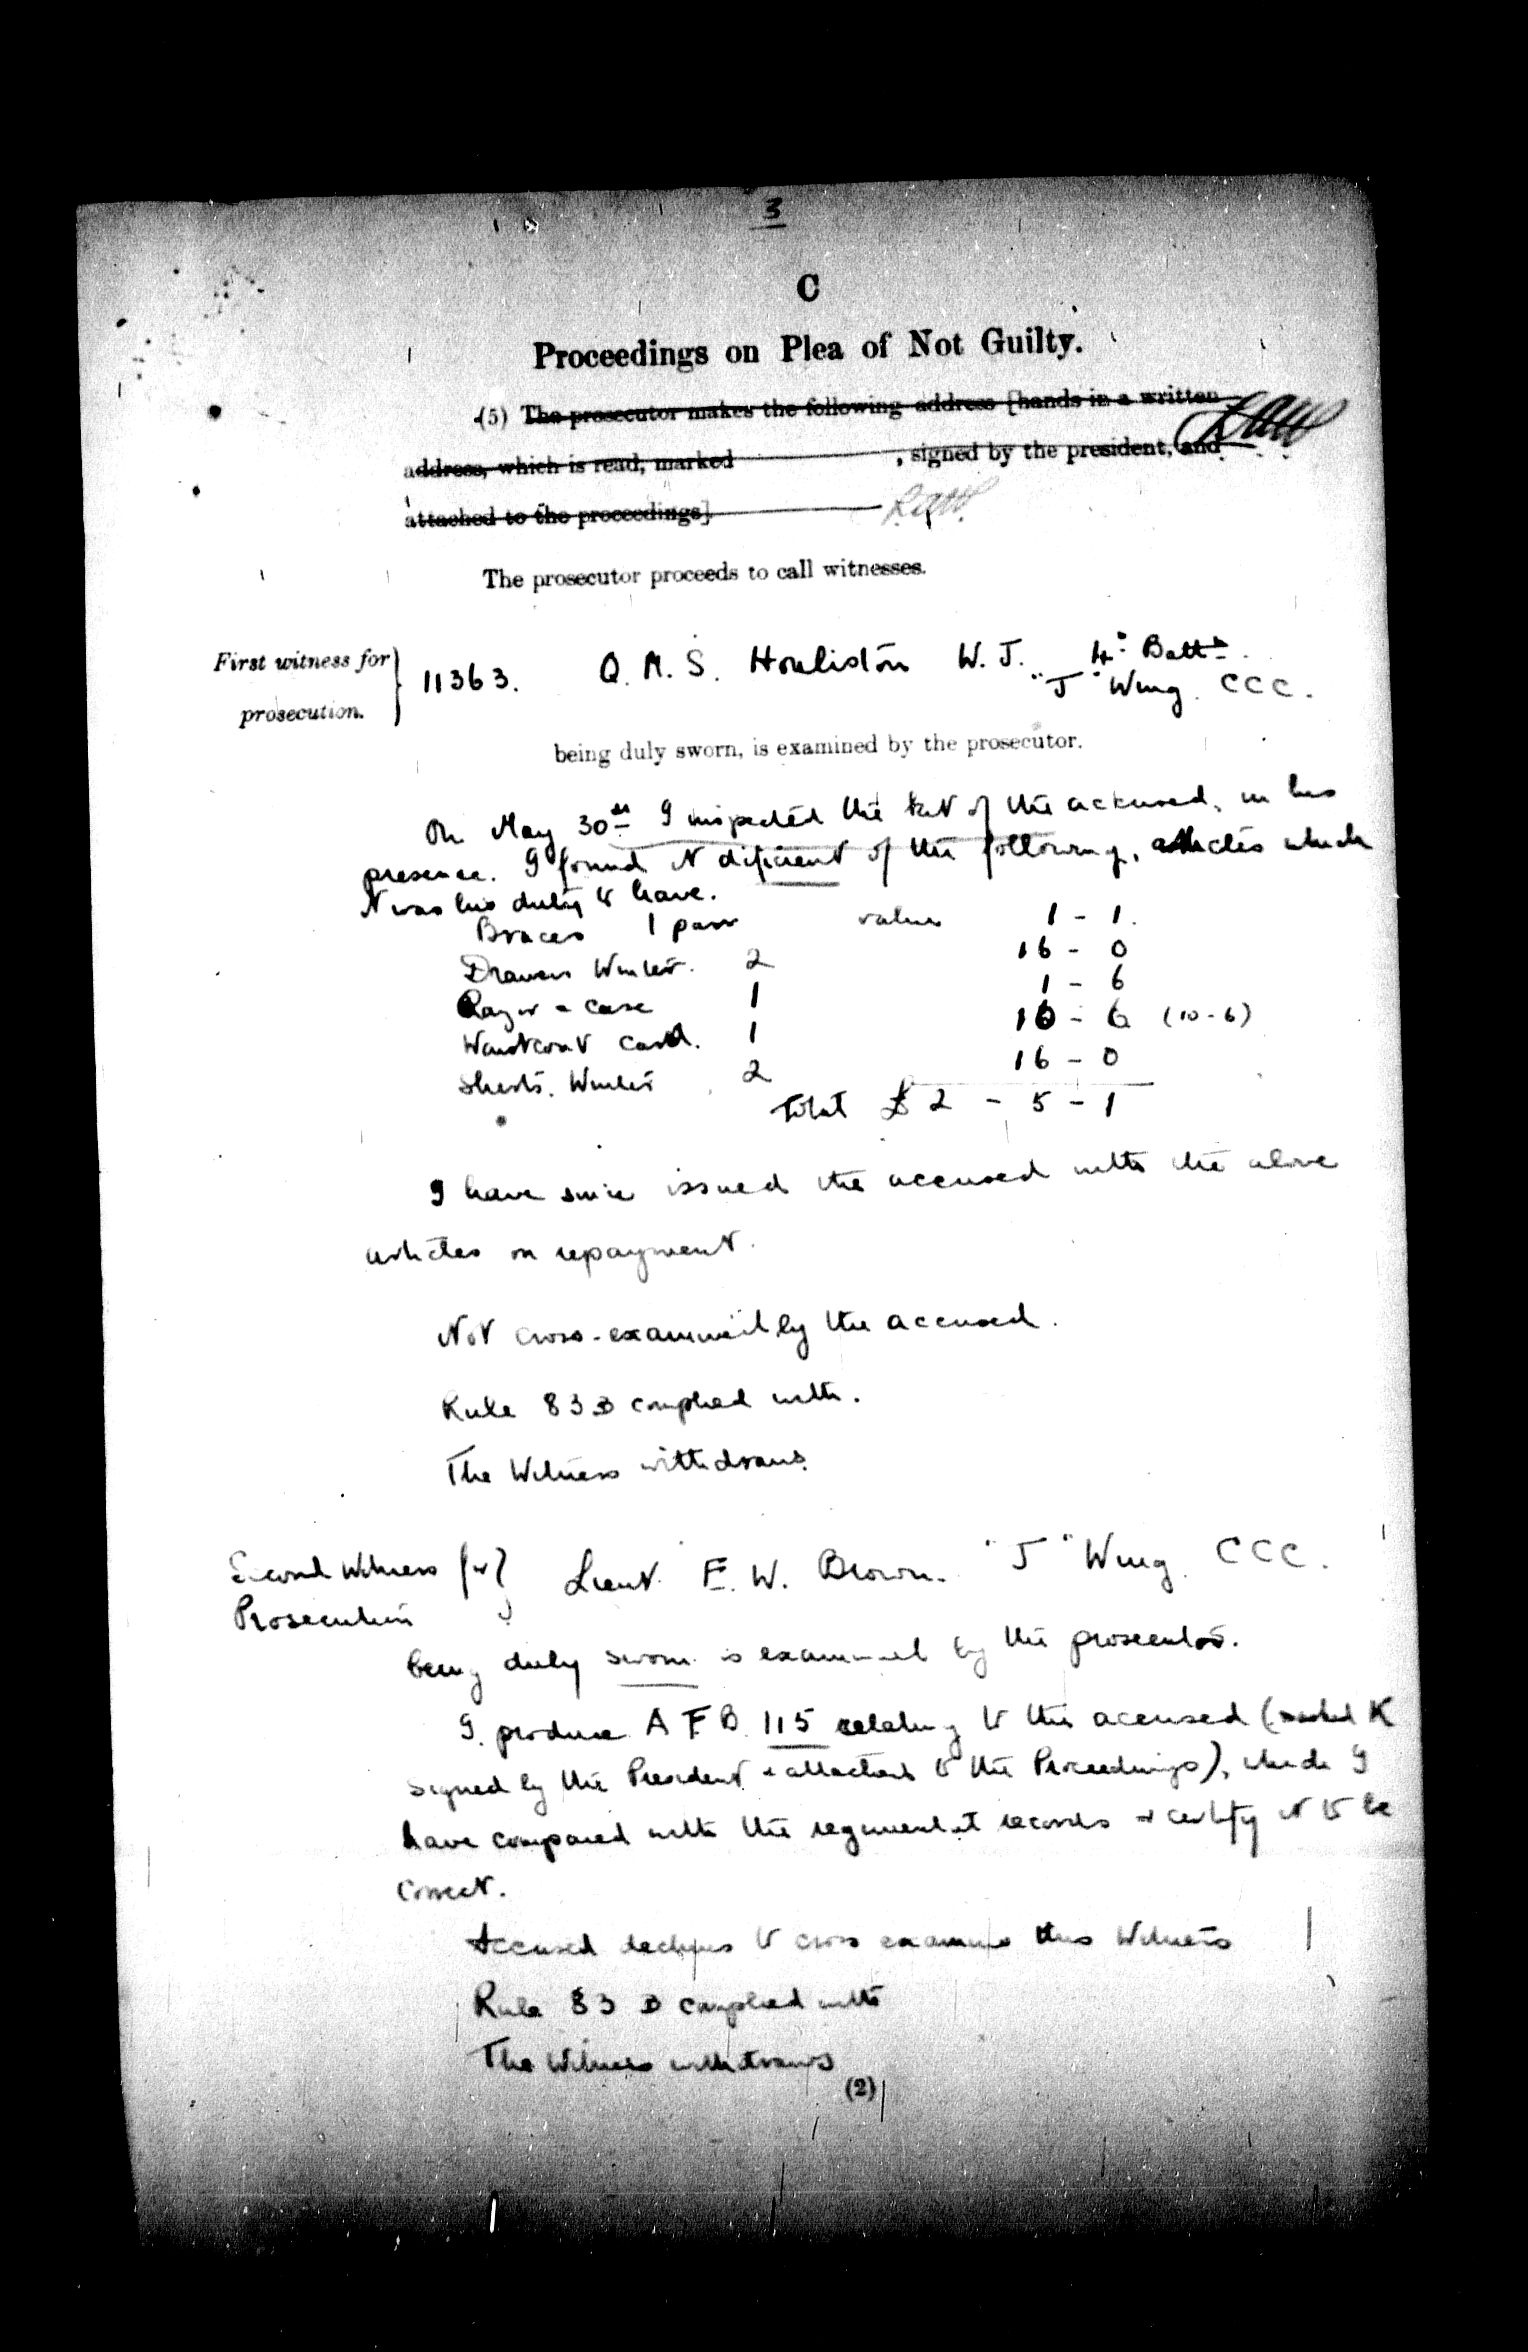 3
C
Proceedings on Plea of Not Guilty.
(5) The prosecutor makes the following address [hands in a written
address, which is read, marked , signed by the president, and
attached to the proceedings]
The prosecutor proceeds to call witnesses.
First witness for
prosecution.
11363. Q. M. S. Houliston W. J. 4th Battn.
"J" Wing. CCC.
being duly sworn, is examined by the prosecutor.
On May 30th I inspected the kit of the accused, in his
presence. I found it dificient of the following, articles which
it was his duty to have.
Braces 1 pair value 1 - 1.
Drawers Winter. 2 16 - 0
Razor & case 1 1 - 6
Waistcoat Card. 1 10 - 6 (10-6)
Shirts. Winter 2 16 - 0
Total £ 2 - 5 - 1
I have since issued the accused with the above
articles on repayment.
Not cross-examined by the accused.
Rule 83 B complied with.
The Witness withdraws.
Second Witness for
Prosecution
Lieut. E. W. Brown. "J" Wing. CCC.
being duly sworn is examined by the prosecutor.
I produce A F B 115 relating to the accused (marked K
signed by the President & attached to the Proceedings), which I
have compared with the regimental records & certify it to be
correct.
Accused declines to cross examine this Witness
Rule 83 B complied with
The Witness withdraws
(2)